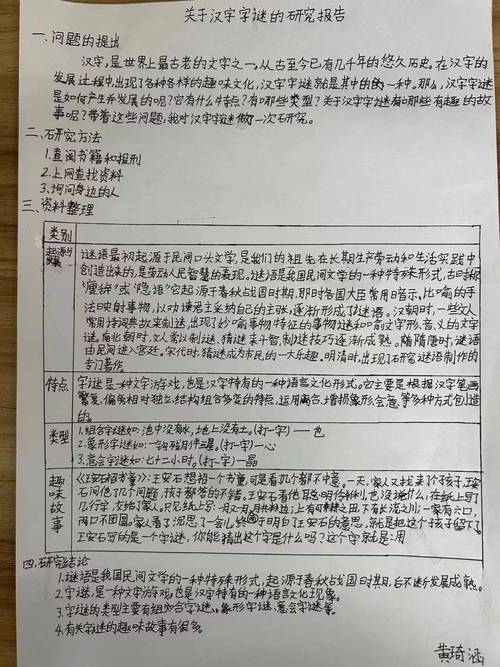 关于汉字字谜的研究报告
一、问题的提出
汉字,是世界上最古老的文字之一,从古至今已有几千年的悠久历史。在汉字的
发展过程中,出现了各种各样的趣味文化,汉字字谜就是其中的的一种。那么,汉字字谜
是如何产生并发展的呢?它有什么特点?有哪些类型?关于汉字字谜有哪些有趣的故
事呢?带着这些问题,我对汉字字谜做一次研究。
二、研究方法
1.查阅书籍和报刊
2.上网查找资料
3.询问身边的人
三、资料整理
类别
起源与发展
谜语最初起源于民间口头文学,是我们的祖先在长期生产劳动和生活实践中
创造出来的,是劳动人民智慧的表现。谜语是我国民间文学的一种特殊形式,古时称
"廋辞"或"隐语"它起源于春秋战国时期,那时各国大臣常用暗示、比喻的手
法映射事物,以劝谏君主采纳自己的主张,逐渐形成了谜语。汉朝时,一些文人
常用诗词典故来制谜,出现了妙喻事物特征的事物谜和喻文字形、音、义的文字
谜。南北朝时,文人常以制谜、猜谜来斗智,制谜技巧逐渐成熟。隋唐时,谜语
由民间进入宫廷。宋代时,猜谜成为市民的一大乐趣。明清时,出现了研究谜语制作的
专门著作
特点
字谜是一种文字游戏,也是汉字特有的一种语言文化形式。它主要是根据汉字笔画
繁复、偏旁相对独立,结构组合多变的特点,运用离合、增损、象形、会意等多种方式创造
的。
类型
1.组合字谜如:池中没有水,地上没有土。(打一字)——也
2.象形字谜如:一钩残月伴三星。(打一字)—心
3.意会字谜如:七十二小时。(打一字)—晶
趣味故事
《王安石招书童》:王安石想招一个书童,可是看几个都不中意。一天,家人又找来了个孩子,王安
石问他几个问题,孩子都答的不错。王安石看他聪明伶俐,也没说什么,在纸上写了
几行字,交给了家人。只见纸上写:一月又一月,月月共边;上有可耕之田,下有长流之川;一家有六口,
两口不团圆。家人看了沉思了一会儿,终于明白王安石的意思,就是把这个孩子留下了
王安石写的是一个字谜,你能猜出这个字是什么吗?这个字就是:用
四、研究结论
1.谜语是我国民间文学的一种特殊形式,起源于春秋战国时期,后不断发展成熟。
2.字谜,是一种文字游戏也是汉字特有的一种语言文化现象。
3.字谜的类型主要有组合字谜、象形字谜、意会字谜等。
4.有关字谜的趣味故事有很多。
黄琦涵